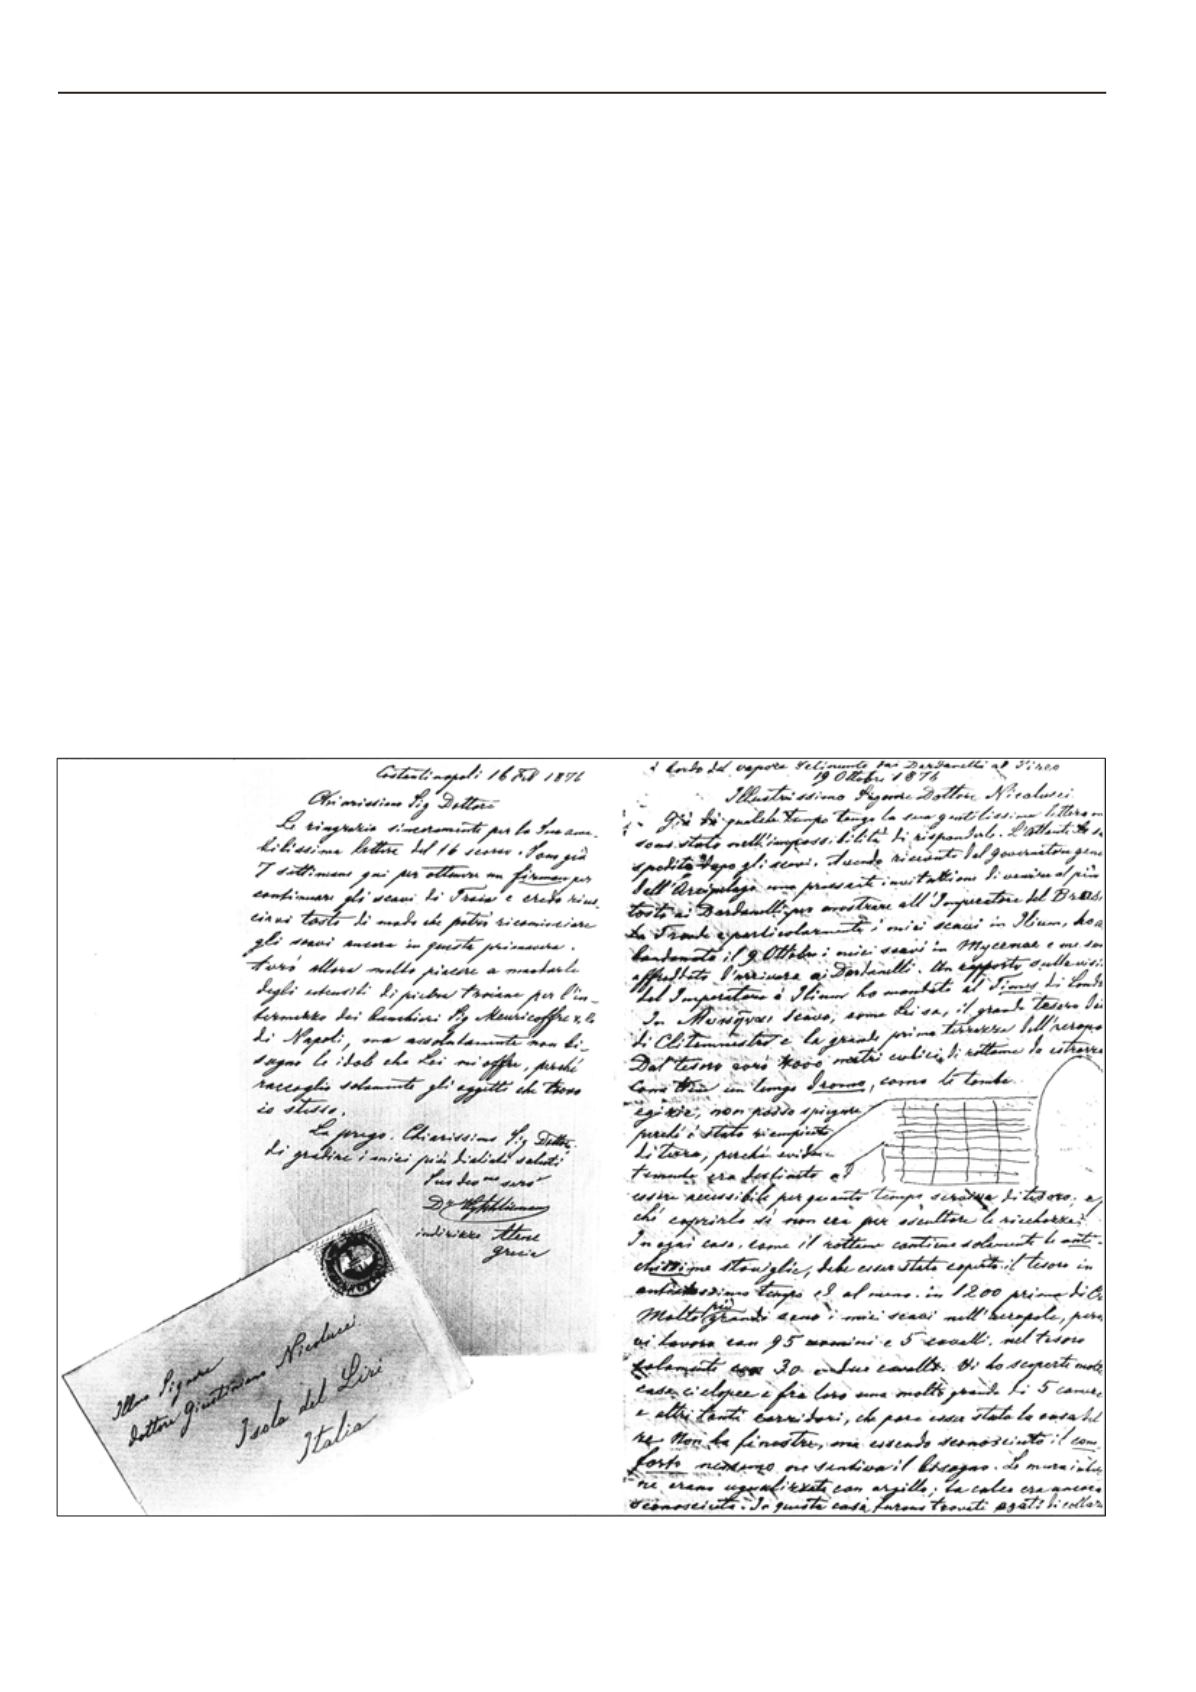 Costantinopoli 16 Feb 1876
Chiarissimo Sig Dottore
Le ringrazio sinceramente per la Sua ama-
bilissima lettera del 16 scorso. Sono già
7 settimane qui per ottenere un firman per
continuare gli scavi di Troia e credo rius-
cirvi tosto di modo che potrò ricominciare
gli scavi ancora in questa primavera.
Avrò allora molto piacere a mandarle
degli utensili di pietra troiane per l'in-
termezzo dei banchieri Sig Meuricoffre & Co
di Napoli, ma assolutamente non bi-
sogno le idole che Lei mi offre, perché
raccoglio solamente gli oggetti che trovo
io stesso.
La prego, Chiarissimo Sig Dottore
di gradire i miei più distinti saluti
Suo dev.mo servo
Dr Hy Schliemann
indirizzo Atene
Grecia
Illmo Signore
Dottore Giustiniano Nicolucci
Isola del Liri
Italia
a bordo del vapore Selinunte dai Dardanelli al Pireo
19 Ottobre 1876
Illustrissimo Signore Dottore Nicolucci
Già di qualche tempo tengo la sua gentilissima lettera
sono stato nell'impossibilità di risponderle.
dopo gli scavi. Avendo ricevuto del governatore gene
dell'Arcipelago una pressante invitazione di venire al più
tosto ai Dardanelli per mostrare all'Imperatore del
la Troade e particolarmente i miei scavi in Ilium, ho a
bandonato il 9 Ottobre i miei scavi in Mycenae e me son
affrettato d'arrivare ai Dardanelli. Un rapporto sulla visi
del Imperatore a Ilium ho mandato al Times di Londr
In scavo, come Lei sa, il grande tesoro
di Clitemnestra e la grande prima terrazza dell'acropo
Dal tesoro avrò 4000 metri cubici di rottame da estrarre
un lungo Dromo, come le tombe
egizie, non posso spiegare
perché è stato riempiuto
di terra, perché eviden-
temente era destinato a
essere accessibile per quanto tempo serviva di tesoro.
ché coprirlo se non era per occultare le ricchezze?
In ogni caso, come il rottame contiene solamente le anti-
chissime stoviglie, debe esser stato coperto il tesoro in
antichissimo tempo ed al meno in 1200 prima di C
Molto più grandi sono i miei scavi nell'acropole, perc
vi lavoro con 95 uomini e 5 cavalli. nel tesoro
solamente con 30 e due cavalli. Vi ho scoperte molte
case ciclopee e fra loro una molto grande di 5 camere
e altri tanti corridori, che pare esser stato la casa del
re. Non ha finestre, ma essendo sconosciuto il con-
forto nessuno ne sentiva il bisogno. Le mura inter
ne erano ugualizzate con argilla; la calce era ancora
sconosciuta. In questa casa furono trovati